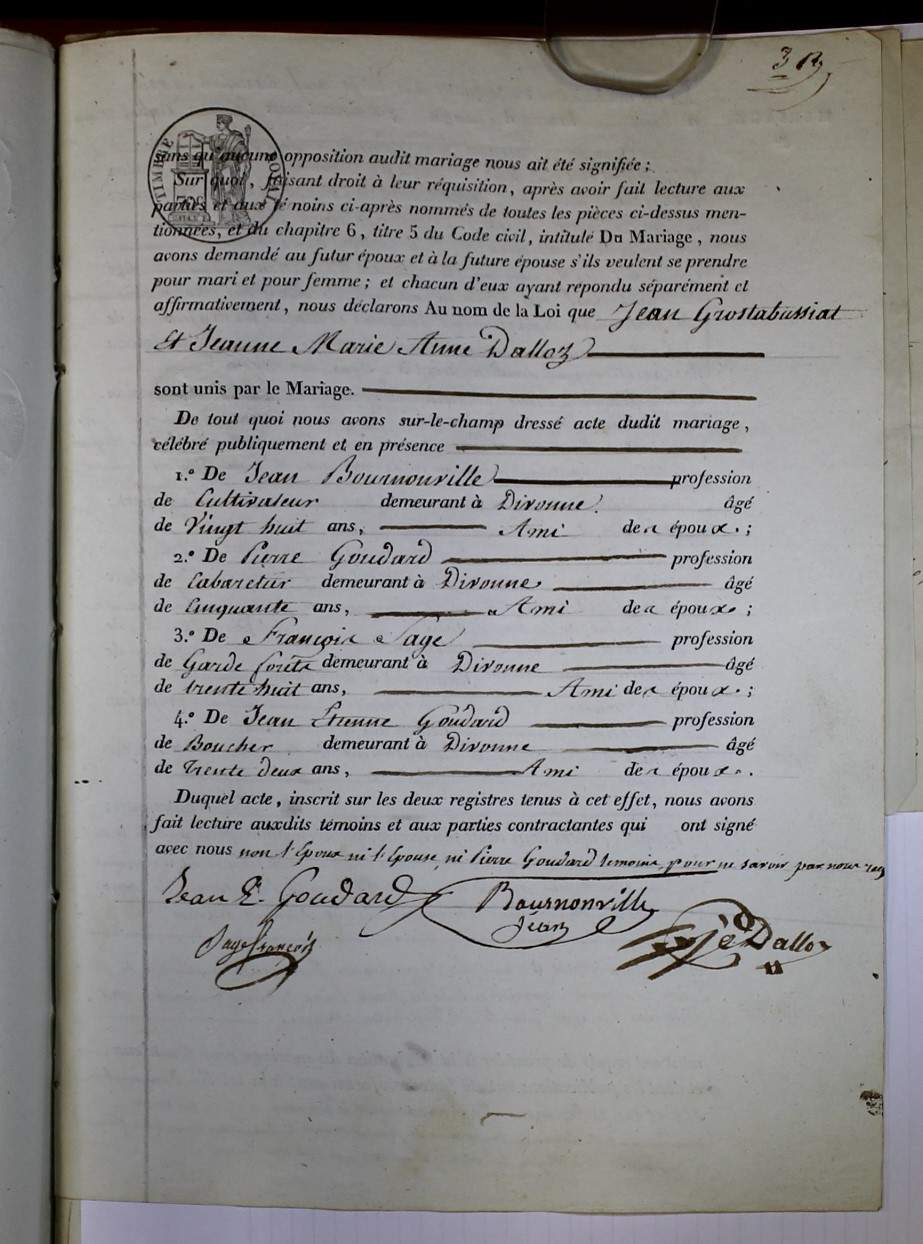 3
TIMBRE ROYAL
sans qu'aucune opposition audit mariage nous ait été signifiée ;
Sur quoi, faisant droit à leur réquisition, après avoir fait lecture aux
parties et aux té noins ci-après nommés de toutes les pièces ci-dessus men-
tionnées, et du chapitre 6, titre 5 du Code civil, intitulé Du Mariage, nous
avons demandé au futur époux et à la future épouse s'ils veulent se prendre
pour mari et pour femme ; et chacun d'eux ayant repondu séparément et
affirmativement, nous déclarons Au nom de la Loi que Jean Grostabussiat
Et Jeanne Marie Anne Dalloz
sont unis par le Mariage.
De tout quoi nous avons sur-le-champ dressé acte dudit mariage,
célébré publiquement et en présence
1.º De Jean Bournonville profession
de Cultivateur demeurant à Divonne âgé
de Vingt huit ans, Ami de époux ;
2.º De Pierre Goudard profession
de Cabaretier demeurant à Divonne âgé
de Cinquante ans, Ami de époux ;
3.º De François Sage profession
de Garde forêts demeurant à Divonne âgé
de trente huit ans, Ami de époux ;
4.º De Jean Etienne Goudard profession
de Boucher demeurant à Divonne âgé
de Trente deux ans, Ami de époux.
Duquel acte, inscrit sur les deux registres tenus à cet effet, nous avons
fait lecture auxdits témoins et aux parties contractantes qui ont signé
avec nous non l'Epoux ni l'Epouse, ni Pierre Goudard temoins pour ne savoir par nous req
Jean E. Goudard Bournonville
Jean
Sage françois Dalloz